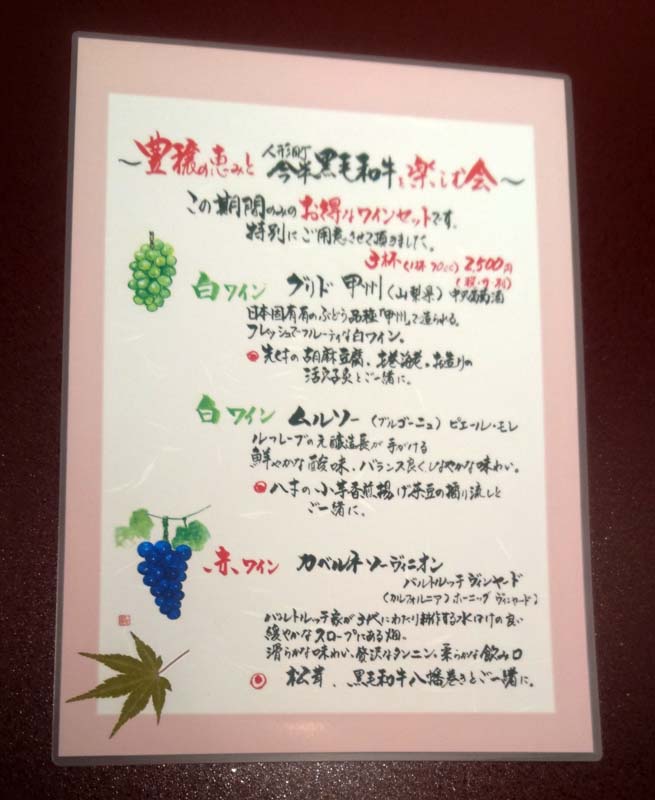 ～豊穣の恵みと人形町今半黒毛和牛を楽しむ会～
この期間のみのお得なワインセットです。
特別にご用意させて頂きました。
3杯(1杯 70cc) 2,500円
(税・サ・別)
白ワイン グリド甲州(山梨県) 中央葡萄酒
日本固有のぶどう品種「甲州」で造られる。
フレッシュでフルーティな白ワイン。
先付の胡麻豆腐、お造りの
活〆穴子炙とご一緒に。
白ワイン ムルソー (ブルゴーニュ) ピエール・モレ
ルフレーブの元醸造長が手がける
鮮やかな酸味、バランス良くしなやかな味わい。
八寸の小芋香煎揚げ茶豆の摺り流しと
ご一緒に。
赤ワイン カベルネソーヴィニオン
バルトルッチ ヴィンヤード
(カルフォルニア) ホーニッグ ヴィンヤード)
バルトルッチ家が3代にわたり耕作する水はけの良い
緩やかなスロープにある畑。
滑らかな味わい、贅沢なタンニン、柔らかな飲み口
松茸、黒毛和牛八幡巻きとご一緒に。